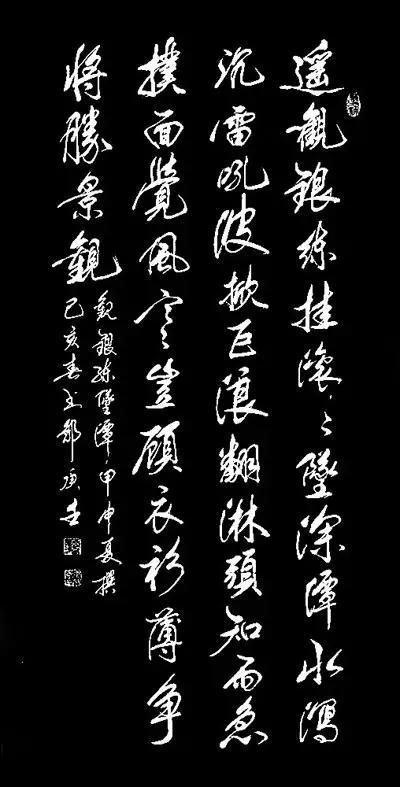 遥觀銀練挂滾々墜深潭水瀉
沉雷吼波掀巨浪翻淋頭知雨急
撲面覺風寒豈顧衣衫薄爭
將勝景觀
觀銀練墜潭甲申夏撰
己亥春书